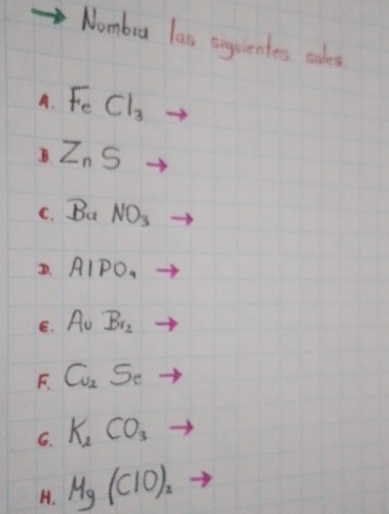 → Nombra las siguientes sales.
A. Fe Cl₃ →
B. Zn S →
C. Ba NO₃ →
D. AlPO₄ →
E. Au Br₂ →
F. Cu₂ Se →
G. K₂ CO₃ →
H. Mg (ClO)₂ →